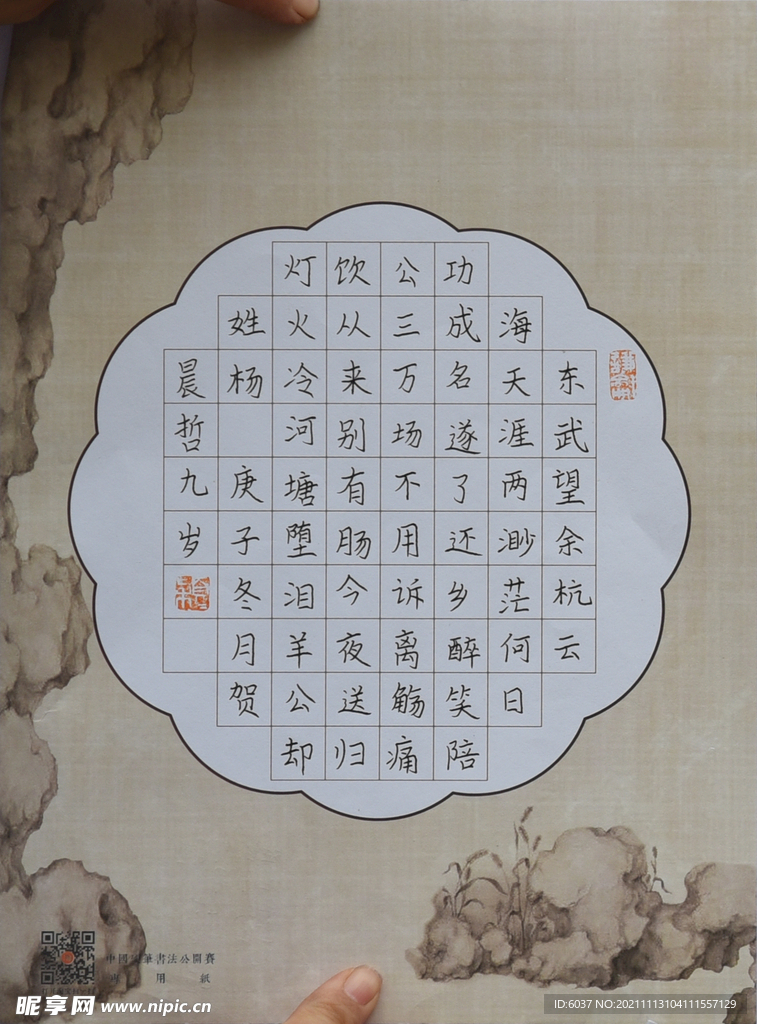 东武望余杭云
海天涯两渺茫何日
功成名遂了还乡醉笑陪
公三万场不用诉离觞痛
饮从来别有肠今夜送归
灯火冷河塘堕泪羊公却
姓杨 庚子冬月贺
晨哲九岁
中國硬筆書法公開賽
專用紙
昵享网 www.nipic.cn
ID:6037 NO:20211113104111557129